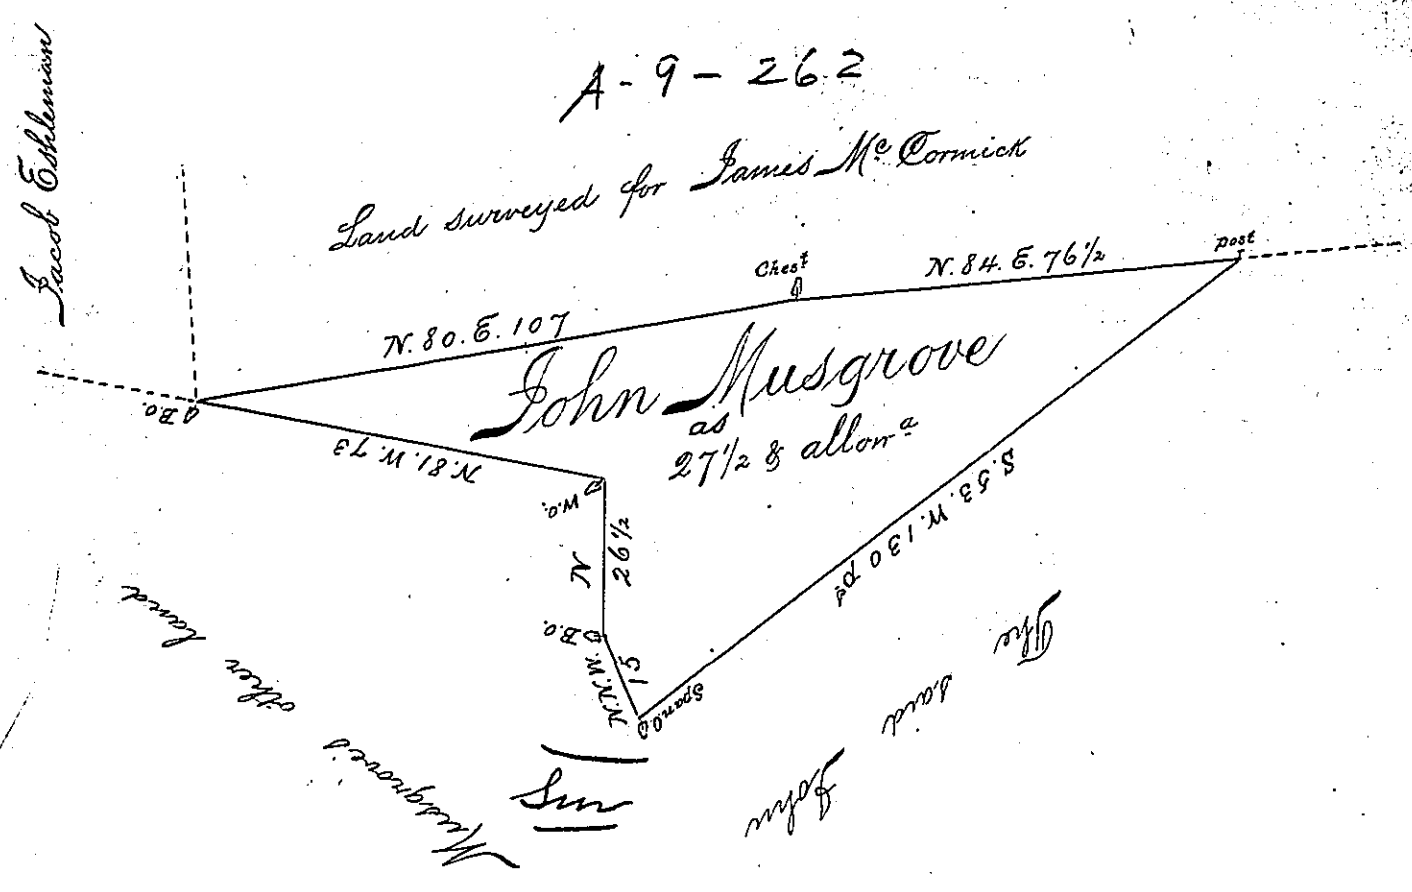 A-9-262
Jacob Eshleman
Land surveyed for James Mc Cormick
Chest
N.84.E.76½
post
N.80.E.107
John Musgrove
as
27½ & allowa
B.o.
N.81.W.73
W.o.
N
26½
B.o.
N.N.W.
15
Span.O.
S.53.W.130 ps
The
said
John
Musgrove's
other
land